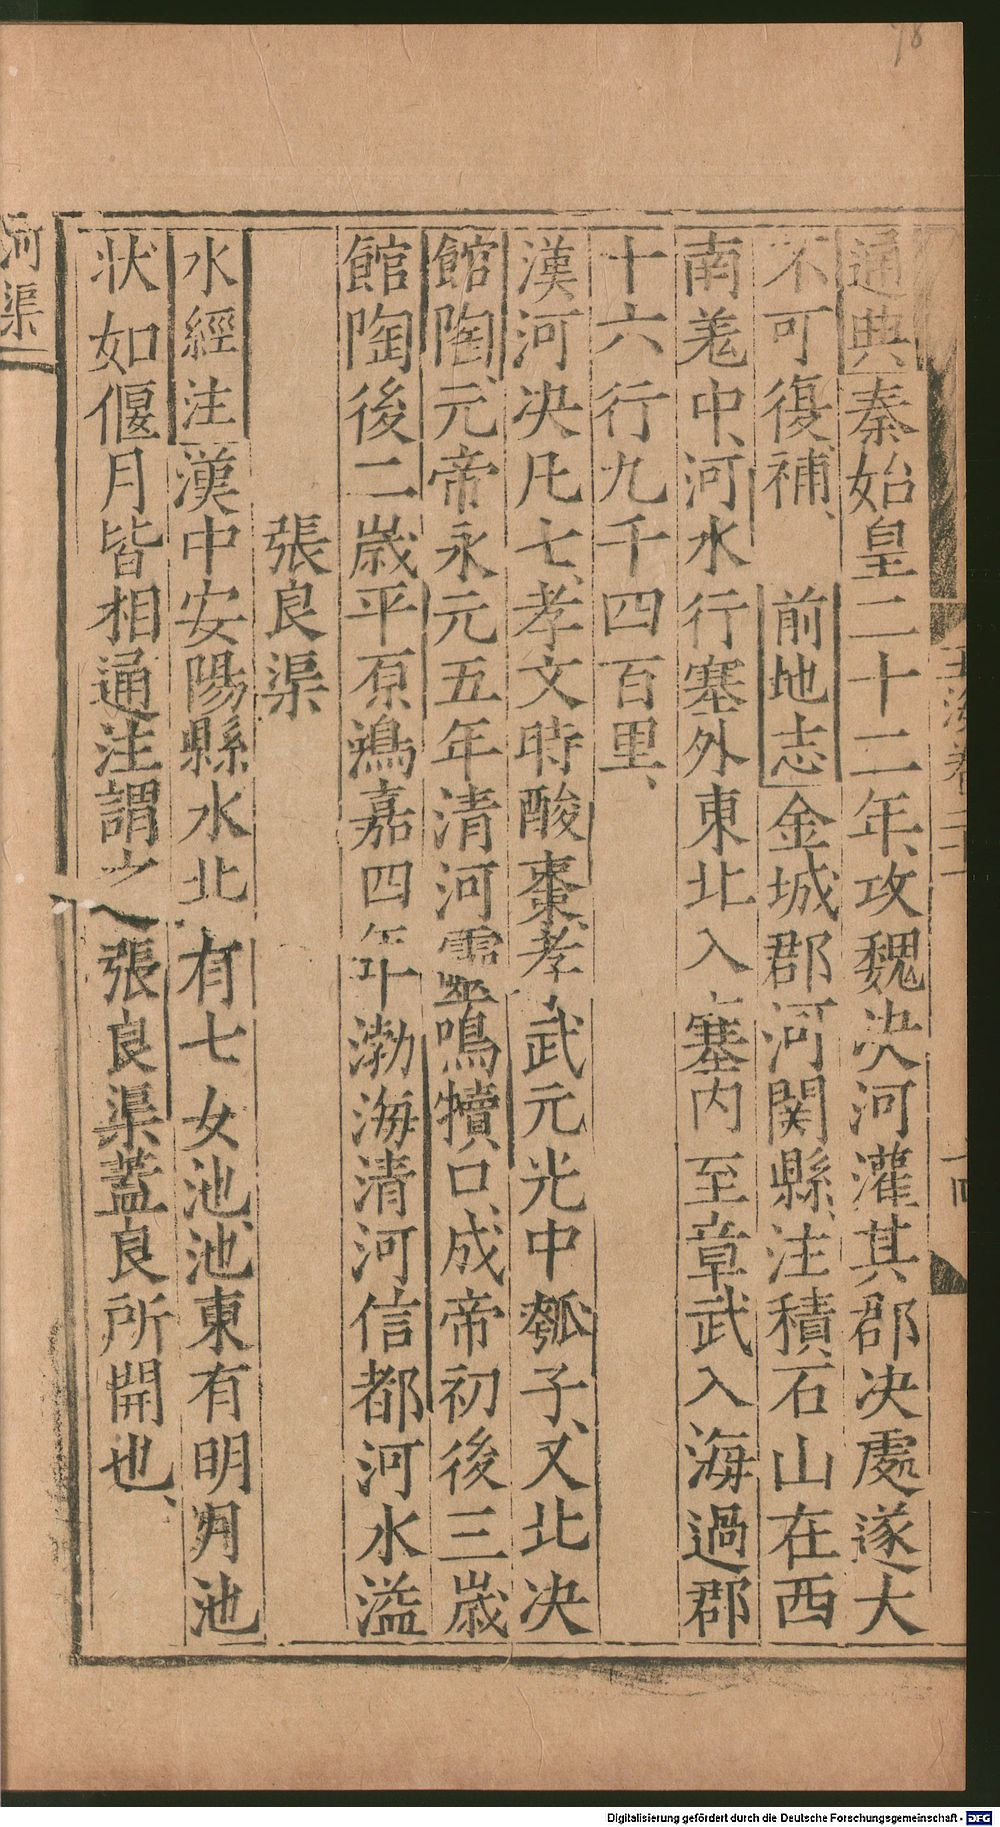 78
通典秦始皇二十二年攻魏决河灌其郡决處遂大
不可復補、前地志金城郡河関縣注積石山在西
南羗中、河水行塞外東北入塞内至章武入海過郡
十六行九千四百里、
漢河决凡七孝文時酸棗孝武元光中瓠子又北决
館陶元帝永元五年清河靈鳴犢口、成帝初後三歲
館陶後二歲平原鴻嘉四年渤海清河信都河水溢
張良渠
水經注漢中安陽縣水北有七女池池東有明月池
状如偃月皆相通注謂之張良渠蓋良所開也、
河渠
Digitalisierung gefördert durch die Deutsche Forschungsgemeinschaft - DFG